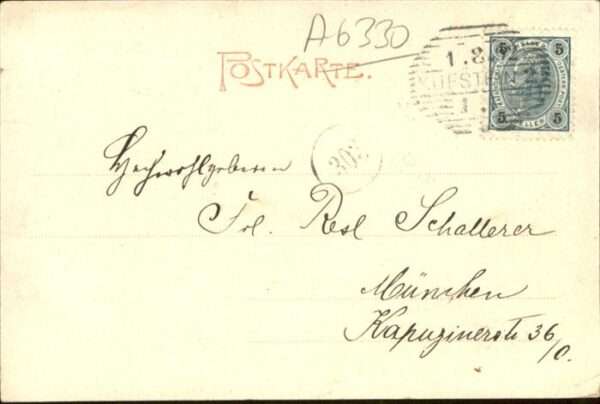 A6330
POSTKARTE.
1.8
KUFSTEIN
1.
5 5
5 HELLER 5
302
Hochwohlgeboren
Frl. Resl Schallerer
München
Kapuzinerstr. 36
/o.